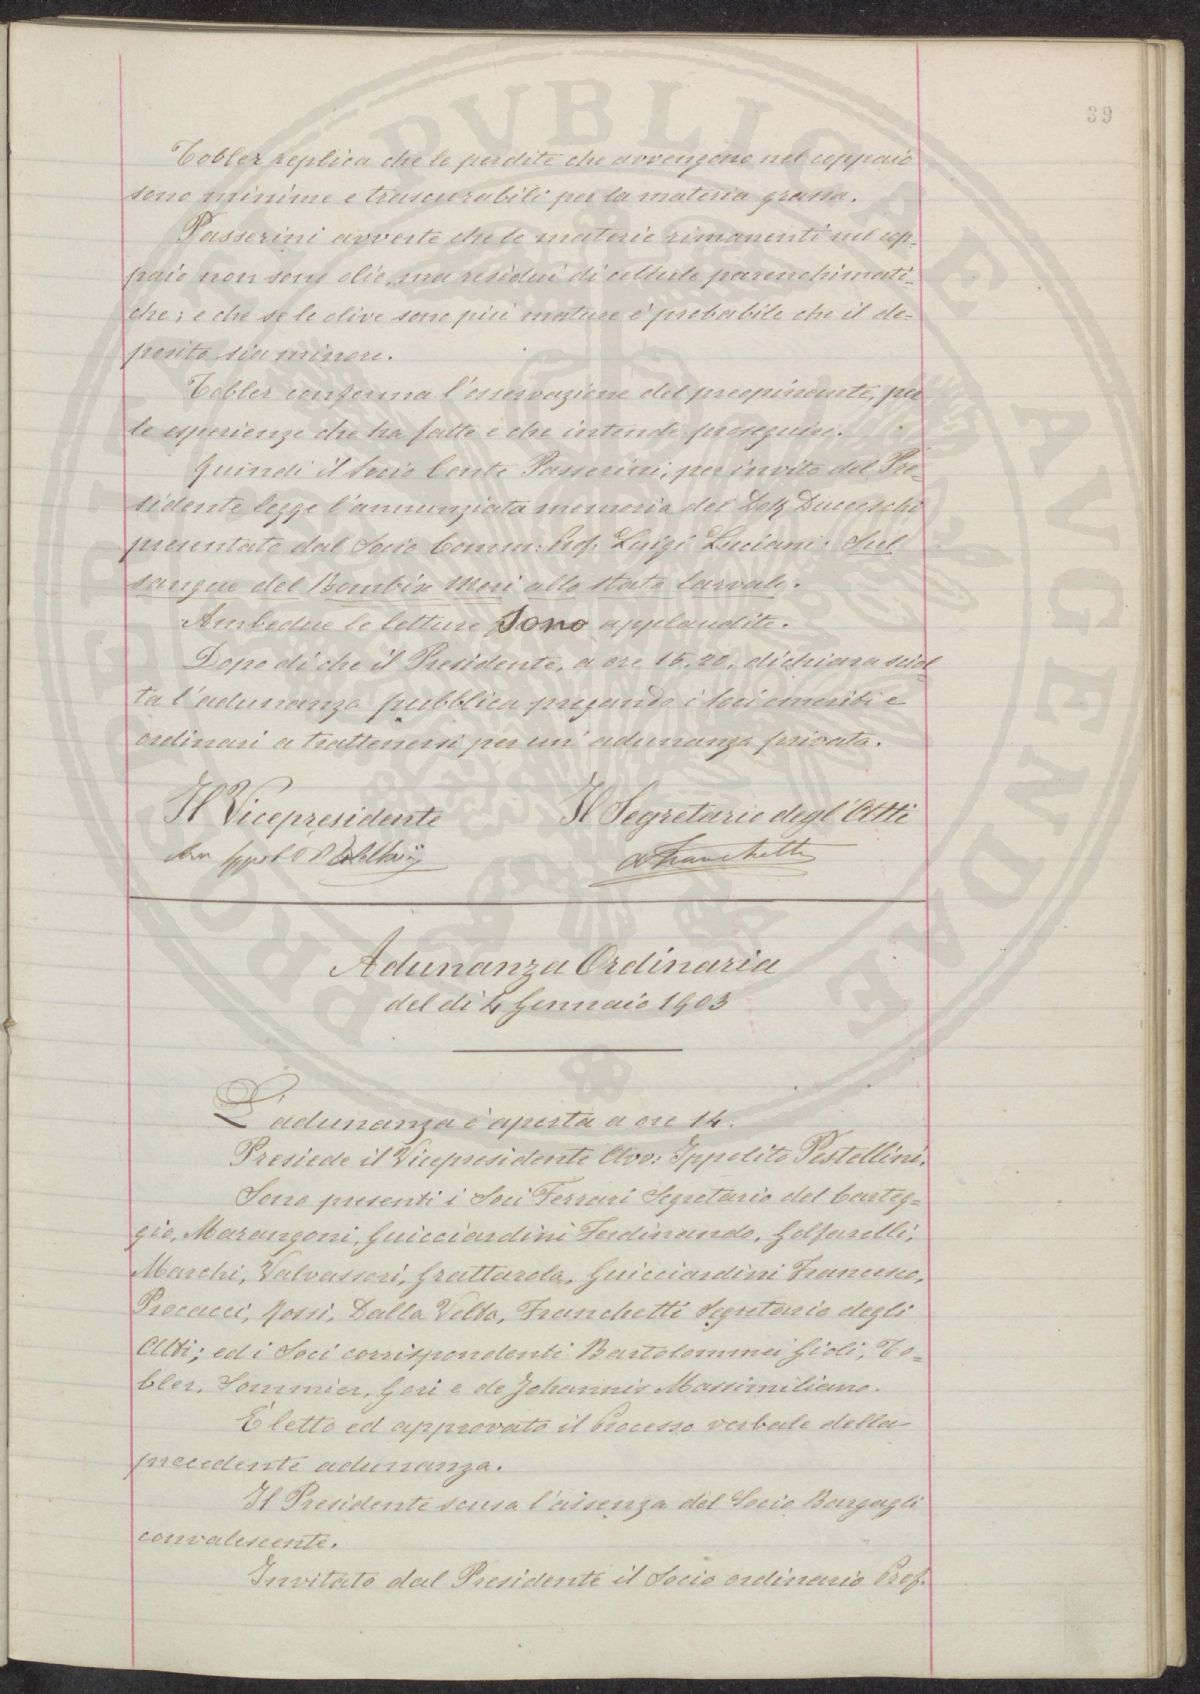 39
Tobler replica che le perdite che avvengono nel coppaio
sono minime e trascurabili per la materia grassa.
Passerini avverte che le materie rimanenti nel cop-
paio non sono olio, ma residui di cellule parenchimati-
che; e che se le olive sono più mature è probabile che il de-
posito sia minore.
Tobler conferma l'osservazione del preopinante, per
le esperienze che ha fatte e che intende proseguire.
Quindi il Socio Conte Passerini, per invito del Pre-
sidente legge l'annunziata memoria del Dott Ducceschi
presentato dal Socio Comm: Prof. Luigi Luciani: Sul
sangue del Bombix Mori allo stato larvale.
Ambedue le letture sono applaudite.
Dopo di che il Presidente, a ore 15,20, dichiara sciol
ta l'adunanza pubblica pregando i Soci emeriti e
ordinari a trattenersi per un' adunanza privata.
Il Vicepresidente Il Segretario degl' Atti
A Franchetti
Adunanza Ordinaria
del dì 4 Gennaio 1903
L'adunanza è aperta a ore 14.
Presiede il Vicepresidente Avv: Ippolito Pestellini.
Sono presenti i Soci Ferrari Segretario del Carteg-
gio, Marangoni, Guicciardini Ferdinando, Golfarelli,
Marchi, Valvassori, Grattarola, Guicciardini Francesco,
Procacci, Rossi, Dalla Volta, Franchetti Segretario degli
Atti; ed i Soci corrispondenti Bartolommei Gioli, To-
bler, Sommier, Gori e de Johannis Massimiliano.
È letto ed approvato il Processo verbale della
precedente adunanza.
Il Presidente scusa l'assenza del Socio Bargagli
convalescente.
Invitato dal Presidente il Socio ordinario Prof.